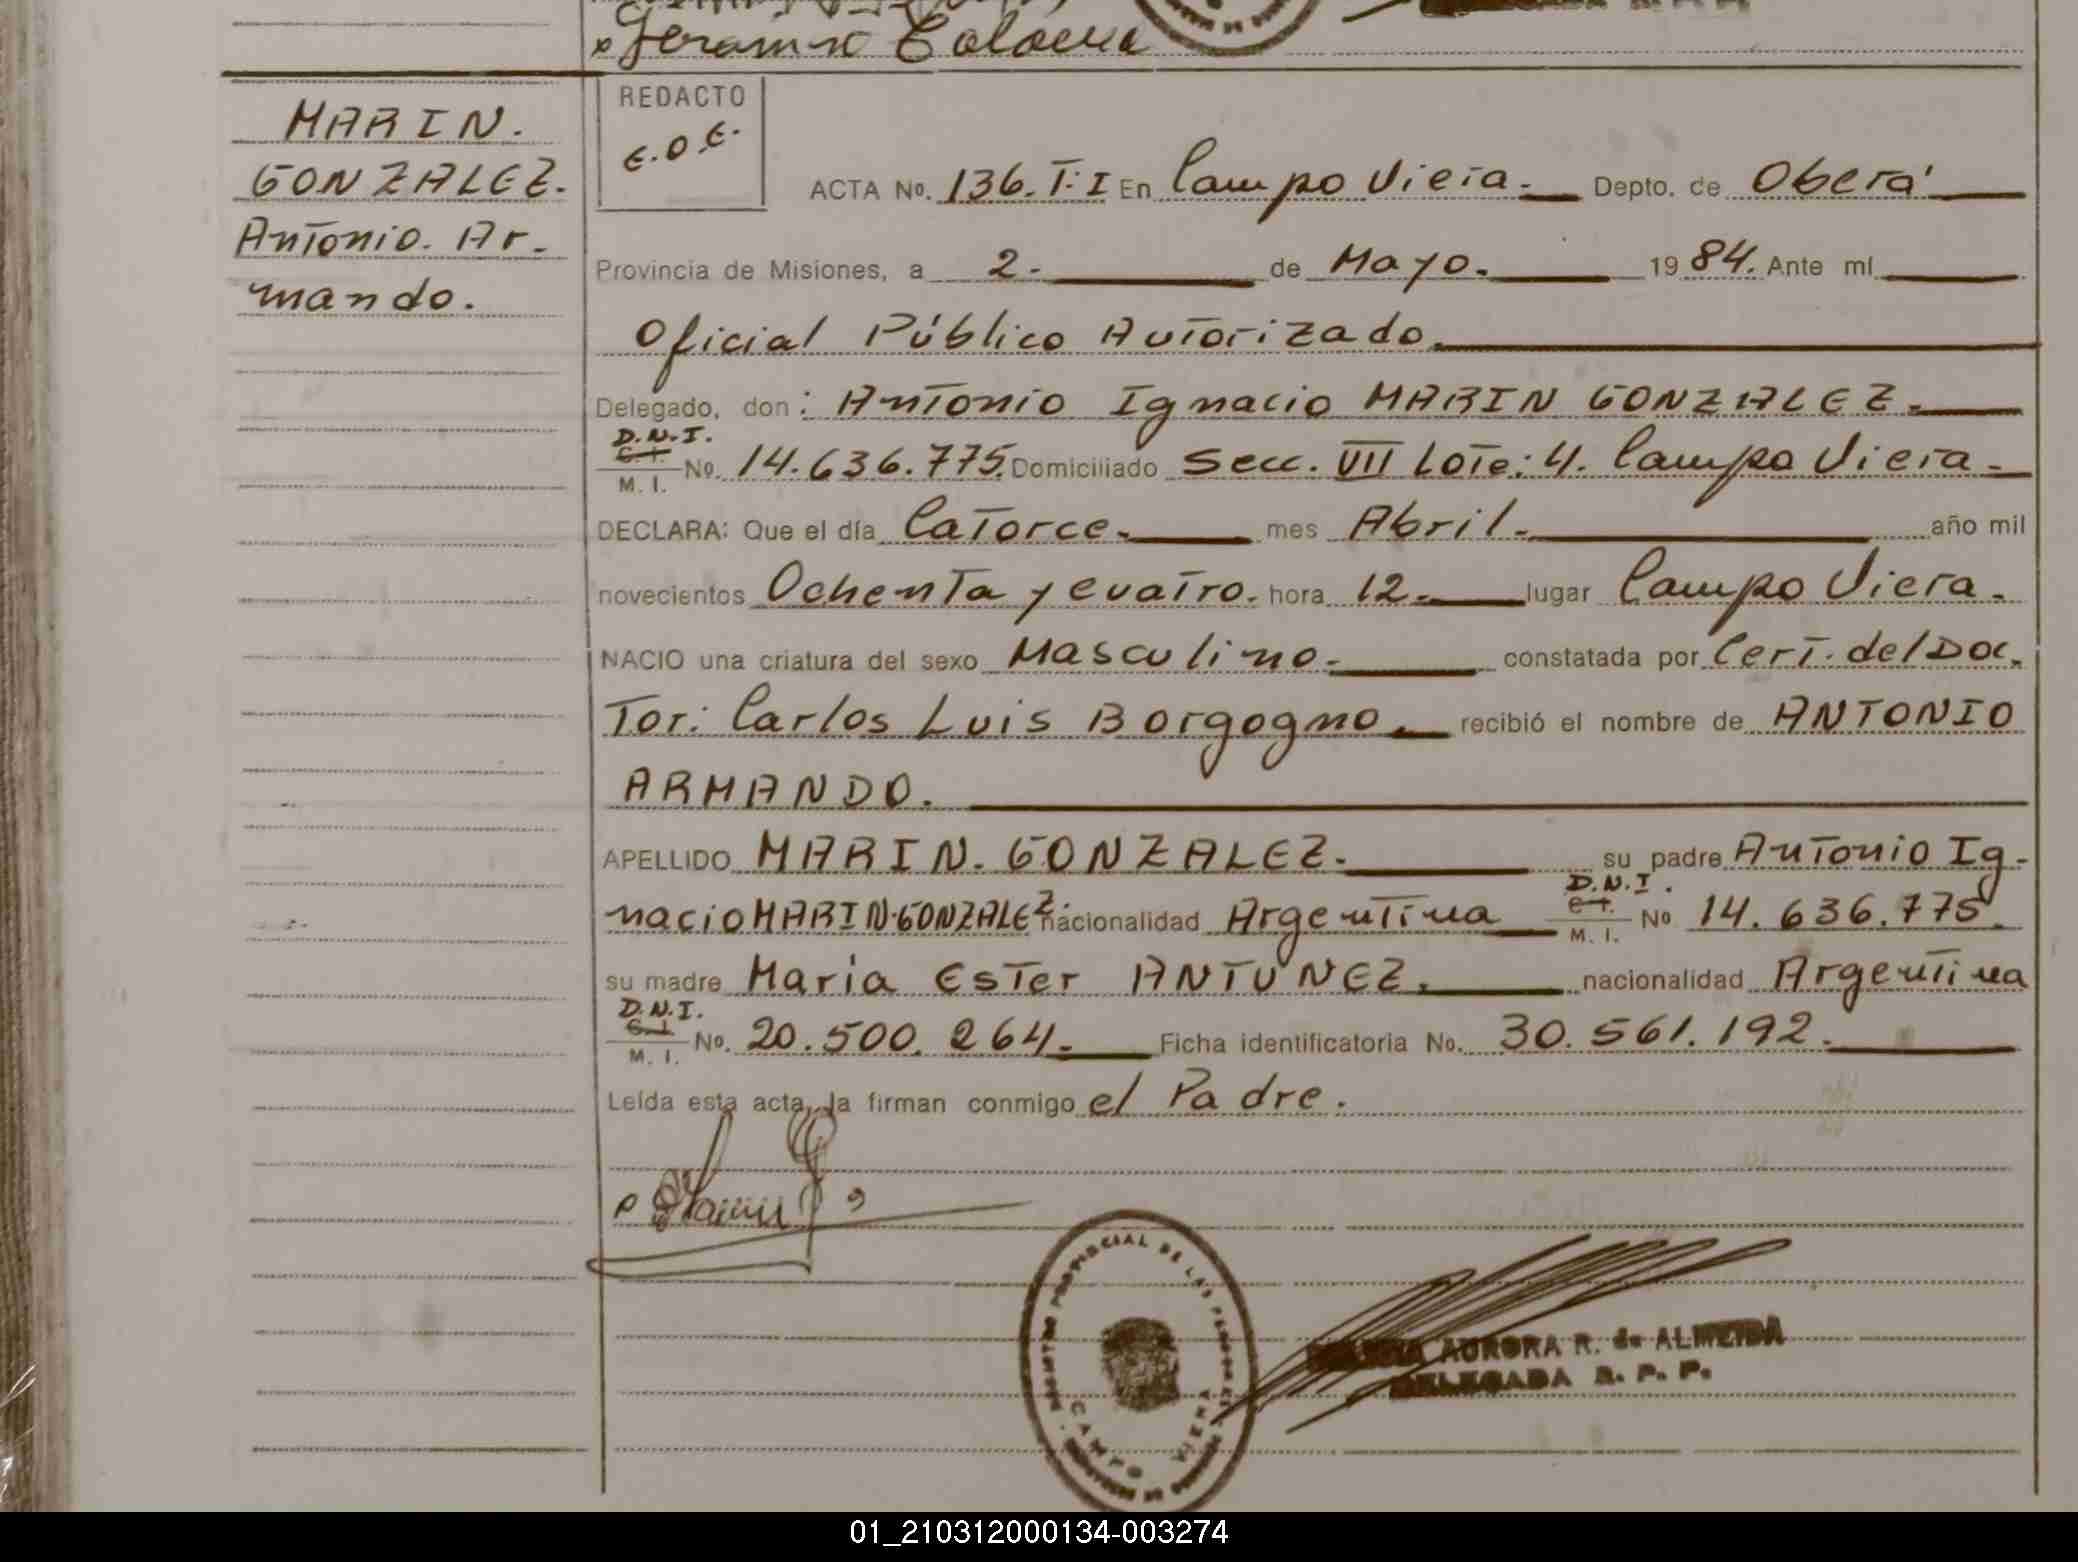 Geronimo Colaena
MARIN.
GONZALEZ.
Antonio. Ar-
mando.
REDACTO
E.O.E.
ACTA No. 136.T:I En Campo Viera.- Depto. de Oberá
Provincia de Misiones, a 2. de Mayo. 1984. Ante mí
Oficial Público Autorizado.
Delegado, don: Antonio Ignacio MARIN GONZALEZ.
D.N.I.
C.I.
M. I. No. 14.636.775. Domiciliado Secc. VII Lote: 4. Campo Viera-
DECLARA: Que el día Catorce. mes Abril. año mil
novecientos Ochenta y cuatro. hora 12. lugar Campo Viera.
NACIO una criatura del sexo Masculino. constatada por Cert. del Doc.
Tor: Carlos Luis Borgogno. recibió el nombre de ANTONIO
ARMANDO.
APELLIDO MARIN. GONZALEZ. su padre Antonio Ig-
nacio MARIN. GONZALEZ. nacionalidad Argentina D.N.I. C.I. M. I. No 14.636.775.
su madre Maria Ester ANTUNEZ. nacionalidad Argentina
D.N.I.
C.I.
M. I. No. 20.500.264. Ficha identificatoria No. 30.561.192.
Leída esta acta, la firman conmigo el Padre.
PROVINCIAL DE LAS PERSONAS
CAMPO VIERA
AURORA R. de ALMEIDA
DELEGADA R. P. P.
01_210312000134-003274